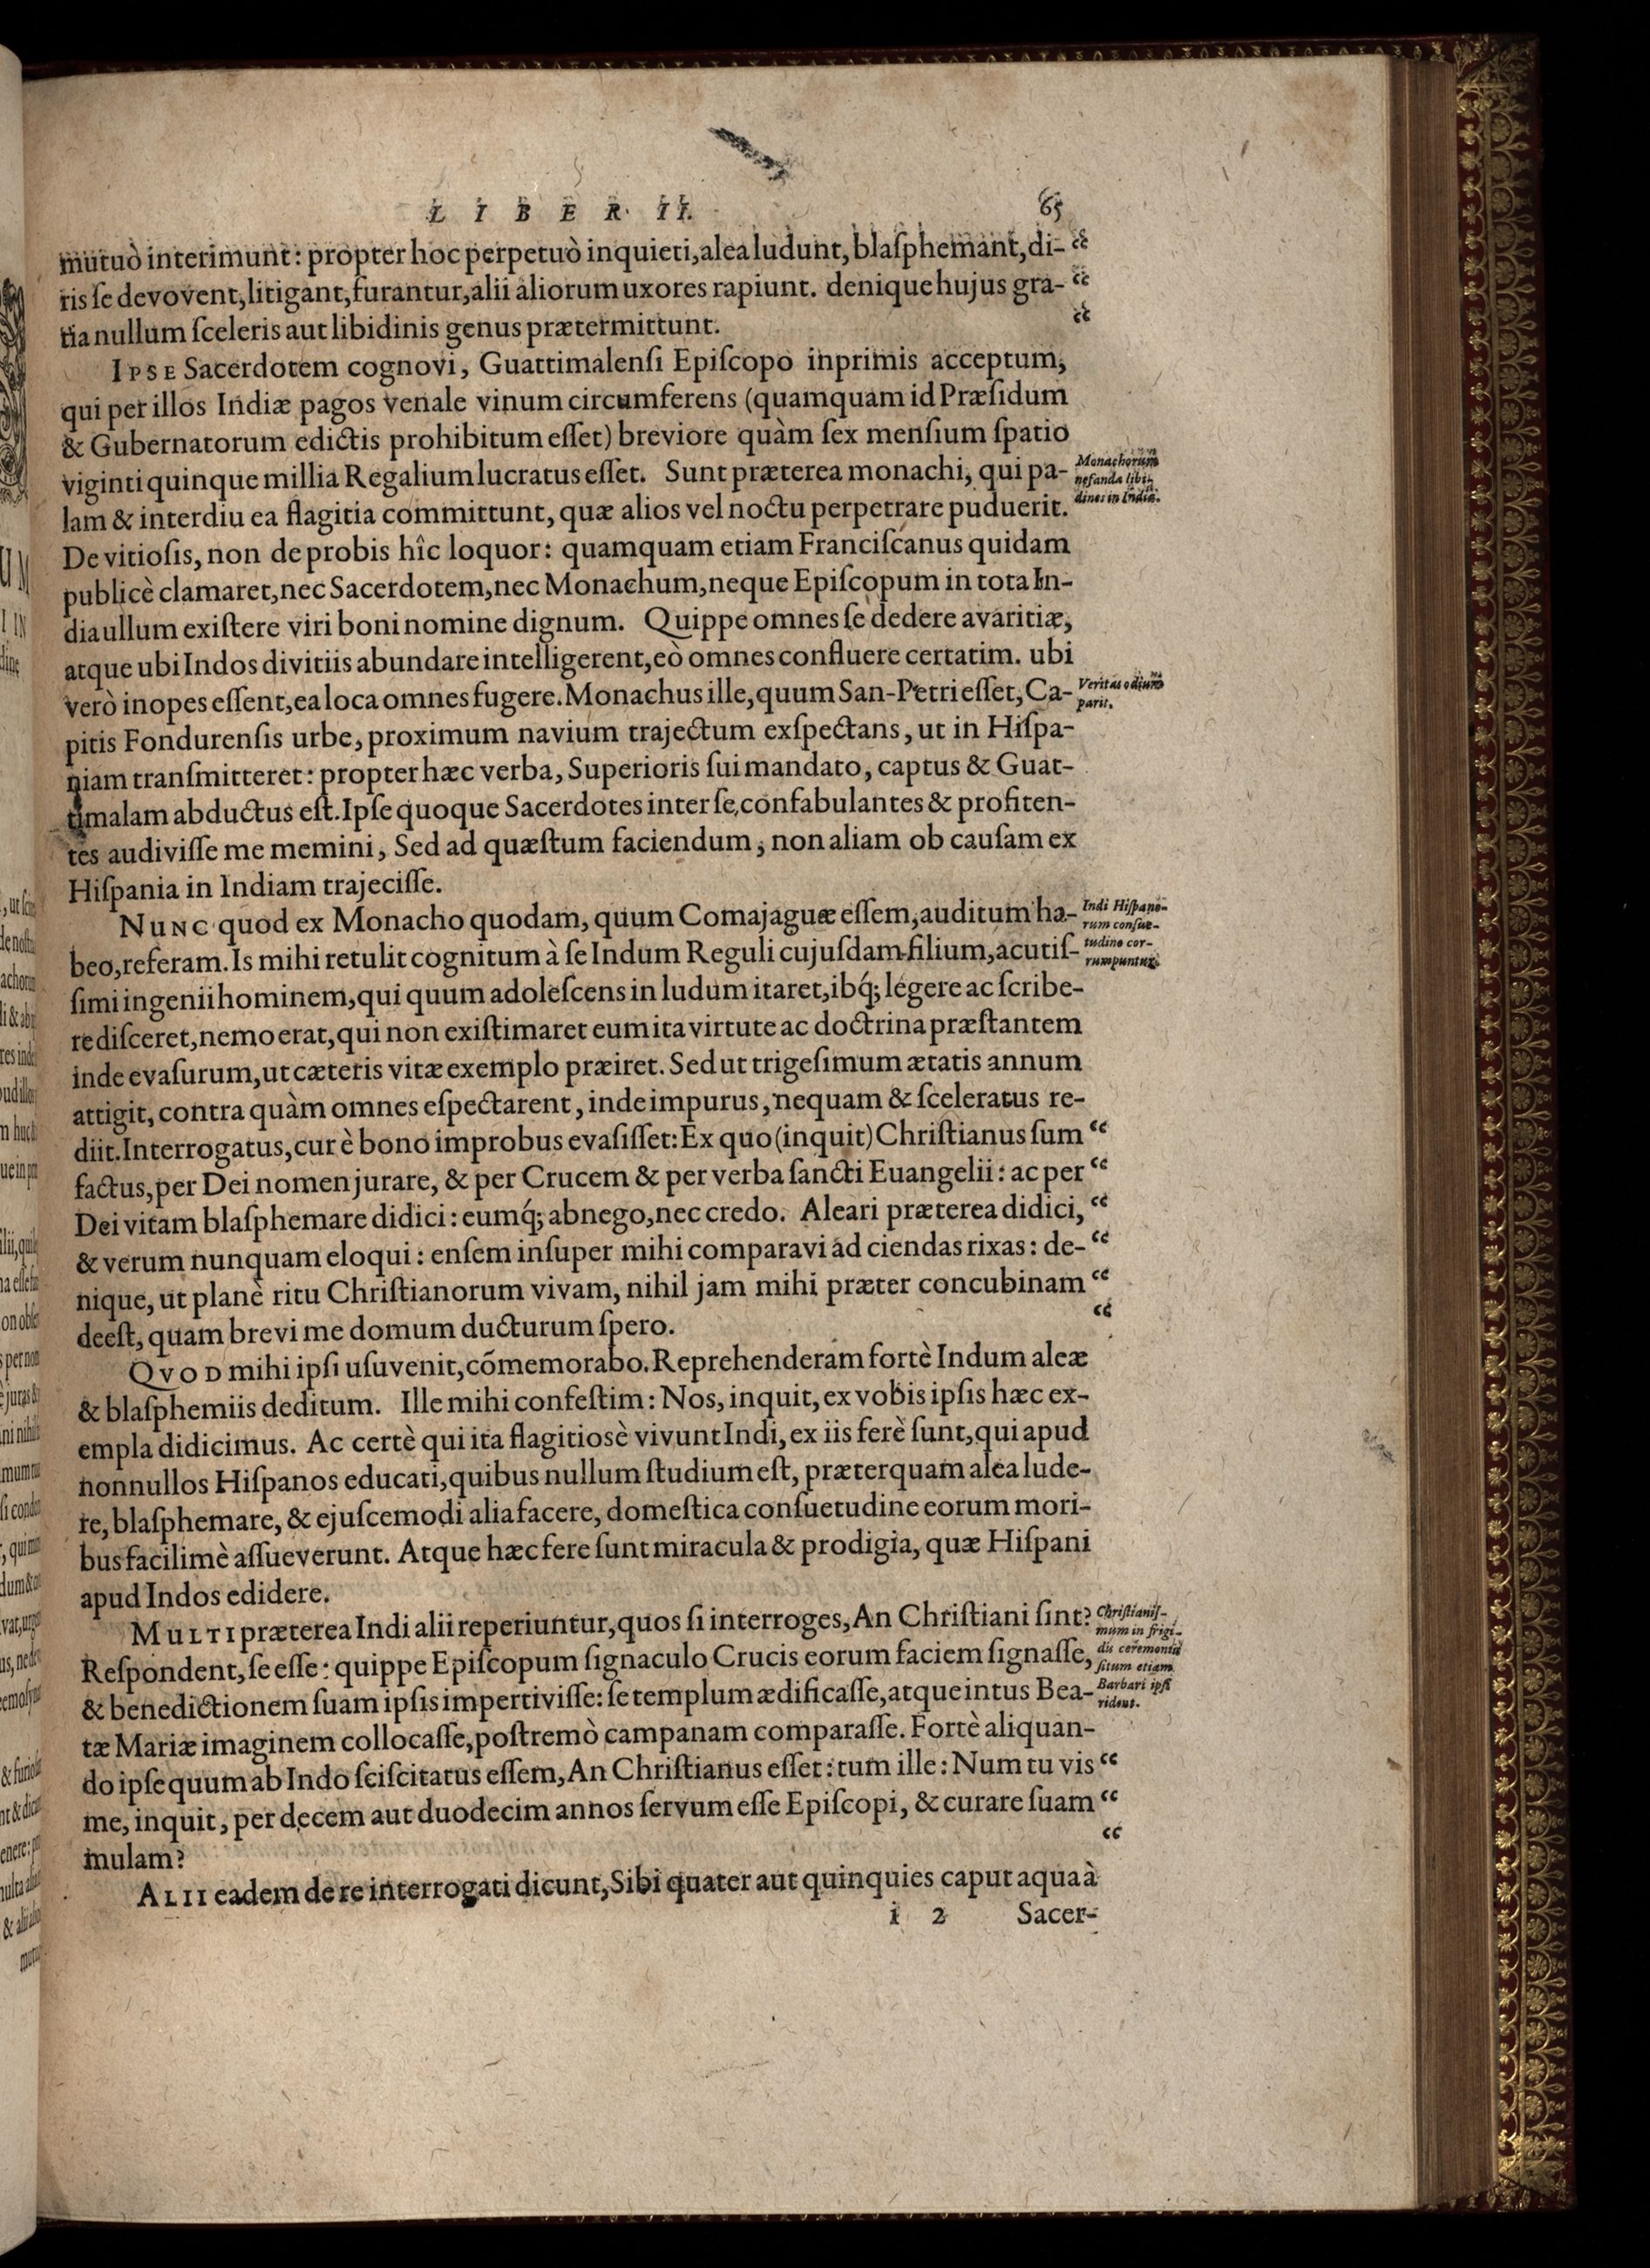 LIBER II. 65
mutuò interimunt: propter hoc perpetuò inquieti, alea ludunt, blaſphemant, di- “
ris ſe devovent, litigant, furantur, alii aliorum uxores rapiunt. denique hujus gra- “
tia nullum ſceleris aut libidinis genus prætermittunt. “
IPSE Sacerdotem cognovi, Guattimalenſi Epiſcopo inprimis acceptum,
qui per illos Indiæ pagos venale vinum circumferens (quamquam id Præſidum
& Gubernatorum edictis prohibitum eſſet) breviore quàm ſex menſium ſpatio
viginti quinque millia Regalium lucratus eſſet. Sunt præterea monachi, qui pa-
Monachorum
nefanda libi-
dines in India.
lam & interdiu ea flagitia committunt, quæ alios vel noctu perpetrare puduerit.
De vitioſis, non de probis hîc loquor: quamquam etiam Franciſcanus quidam
publicè clamaret, nec Sacerdotem, nec Monachum, neque Epiſcopum in tota In-
dia ullum exiſtere viri boni nomine dignum. Quippe omnes ſe dedere avaritiæ,
atque ubi Indos divitiis abundare intelligerent, eò omnes confluere certatim. ubi
verò inopes eſſent, ea loca omnes fugere. Monachus ille, quum San-Petri eſſet, Ca-
Veritas odium
parit.
pitis Fondurenſis urbe, proximum navium trajectum exſpectans, ut in Hiſpa-
niam tranſmitteret: propter hæc verba, Superioris ſui mandato, captus & Guat-
timalam abductus eſt. Ipſe quoque Sacerdotes inter ſe, confabulantes & profiten-
tes audiviſſe me memini, Sed ad quæſtum faciendum, non aliam ob cauſam ex
Hiſpania in Indiam trajeciſſe.
NUNC quod ex Monacho quodam, quum Comajaguæ eſſem, auditum ha-
Indi Hiſpano-
rum conſue-
tudine cor-
rumpuntur.
beo, referam. Is mihi retulit cognitum à ſe Indum Reguli cujuſdam filium, acutiſ-
ſimi ingenii hominem, qui quum adoleſcens in ludum itaret, ibq́; legere ac ſcribe-
re diſceret, nemo erat, qui non exiſtimaret eum ita virtute ac doctrina præſtantem
inde evaſurum, ut cæteris vitæ exemplo præiret. Sed ut trigeſimum ætatis annum
attigit, contra quàm omnes eſpectarent, inde impurus, nequam & ſceleratus re-
diit. Interrogatus, cur è bono improbus evaſiſſet: Ex quo (inquit) Chriſtianus ſum “
factus, per Dei nomen jurare, & per Crucem & per verba ſancti Euangelii: ac per “
Dei vitam blaſphemare didici: eumq́; abnego, nec credo. Aleari præterea didici, “
& verum nunquam eloqui: enſem inſuper mihi comparavi ad ciendas rixas: de- “
nique, ut planè ritu Chriſtianorum vivam, nihil jam mihi præter concubinam “
deeſt, quam brevi me domum ducturum ſpero. “
QVOD mihi ipſi uſuvenit, cõmemorabo. Reprehenderam fortè Indum aleæ
& blaſphemiis deditum. Ille mihi confeſtim: Nos, inquit, ex vobis ipſis hæc ex-
empla didicimus. Ac certè qui ita flagitiosè vivunt Indi, ex iis ferè ſunt, qui apud
nonnullos Hiſpanos educati, quibus nullum ſtudium eſt, præterquam alea lude-
re, blaſphemare, & ejuſcemodi alia facere, domeſtica conſuetudine eorum mori-
bus facilimè aſſueverunt. Atque hæc fere ſunt miracula & prodigia, quæ Hiſpani
apud Indos edidere.
MULTI præterea Indi alii reperiuntur, quos ſi interroges, An Chriſtiani ſint?
Chriſtianiſ-
mum in frigi-
dis ceremoniis
ſitum etiam
Barbari ipſi
rident.
Reſpondent, ſe eſſe: quippe Epiſcopum ſignaculo Crucis eorum faciem ſignaſſe,
& benedictionem ſuam ipſis impertiviſſe: ſe templum ædificaſſe, atque intus Bea-
tæ Mariæ imaginem collocaſſe, poſtremò campanam comparaſſe. Fortè aliquan-
do ipſe quum ab Indo ſciſcitatus eſſem, An Chriſtianus eſſet: tum ille: Num tu vis “
me, inquit, per decem aut duodecim annos ſervum eſſe Epiſcopi, & curare ſuam “
mulam? “
ALII eadem de re interrogati dicunt, Sibi quater aut quinquies caput aqua à
i 2 Sacer-